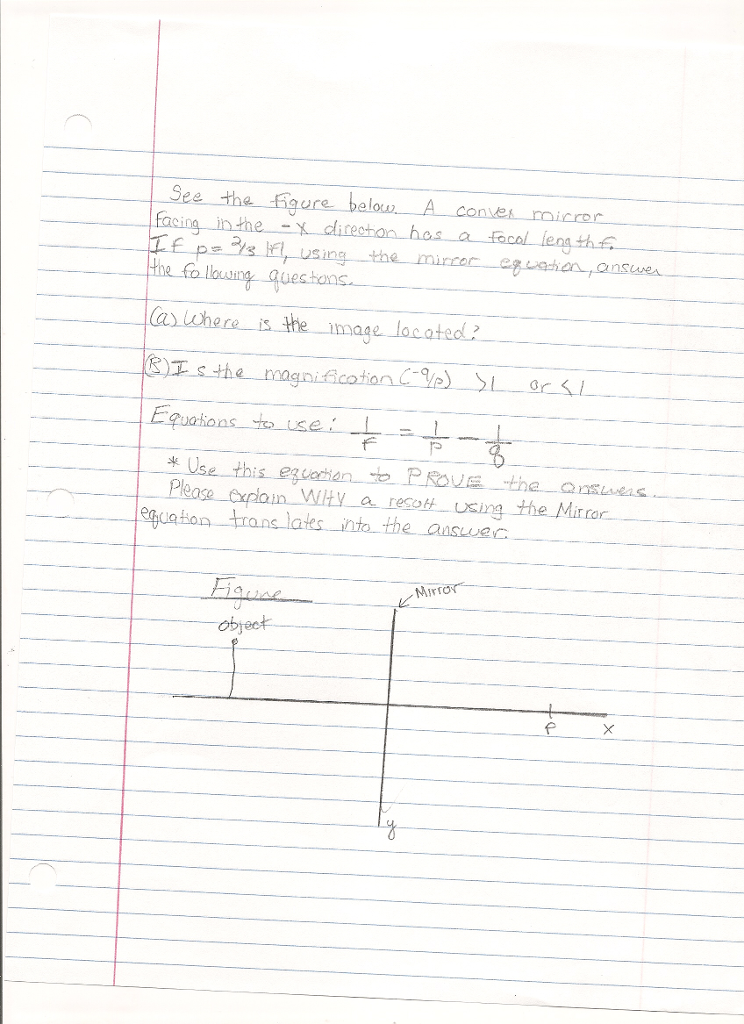 See the figure below. A convex mirror
facing in the -x direction has a focal length f.
If p = 2/3 |f|, using the mirror equation, answer
the following questons.
(a) Where is the image located?
(B) Is the magnification (-q/p) >1 or <1
Equations to use: 1/f = 1/p - 1/q
* Use this equation to PROVE the answers.
Please explain WHY a result using the Mirror
equation translates into the answer.
Figure
Mirror
object
f
x
y